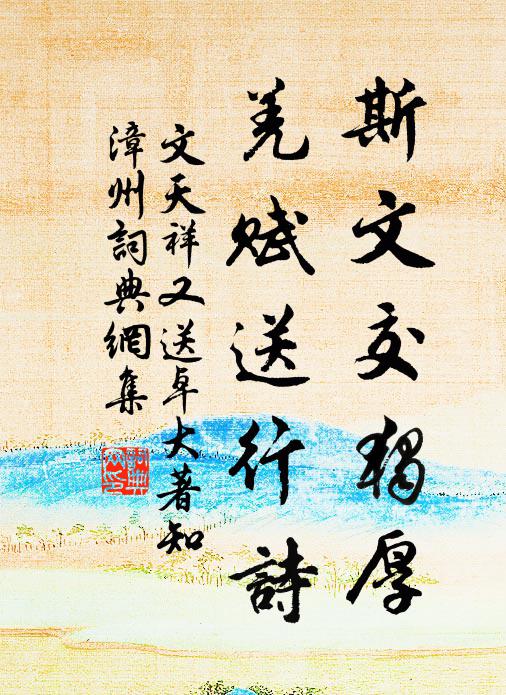 斯文交獨厚
羌賦送行詩
文天祥又送卓大著知
漳州詞典網集